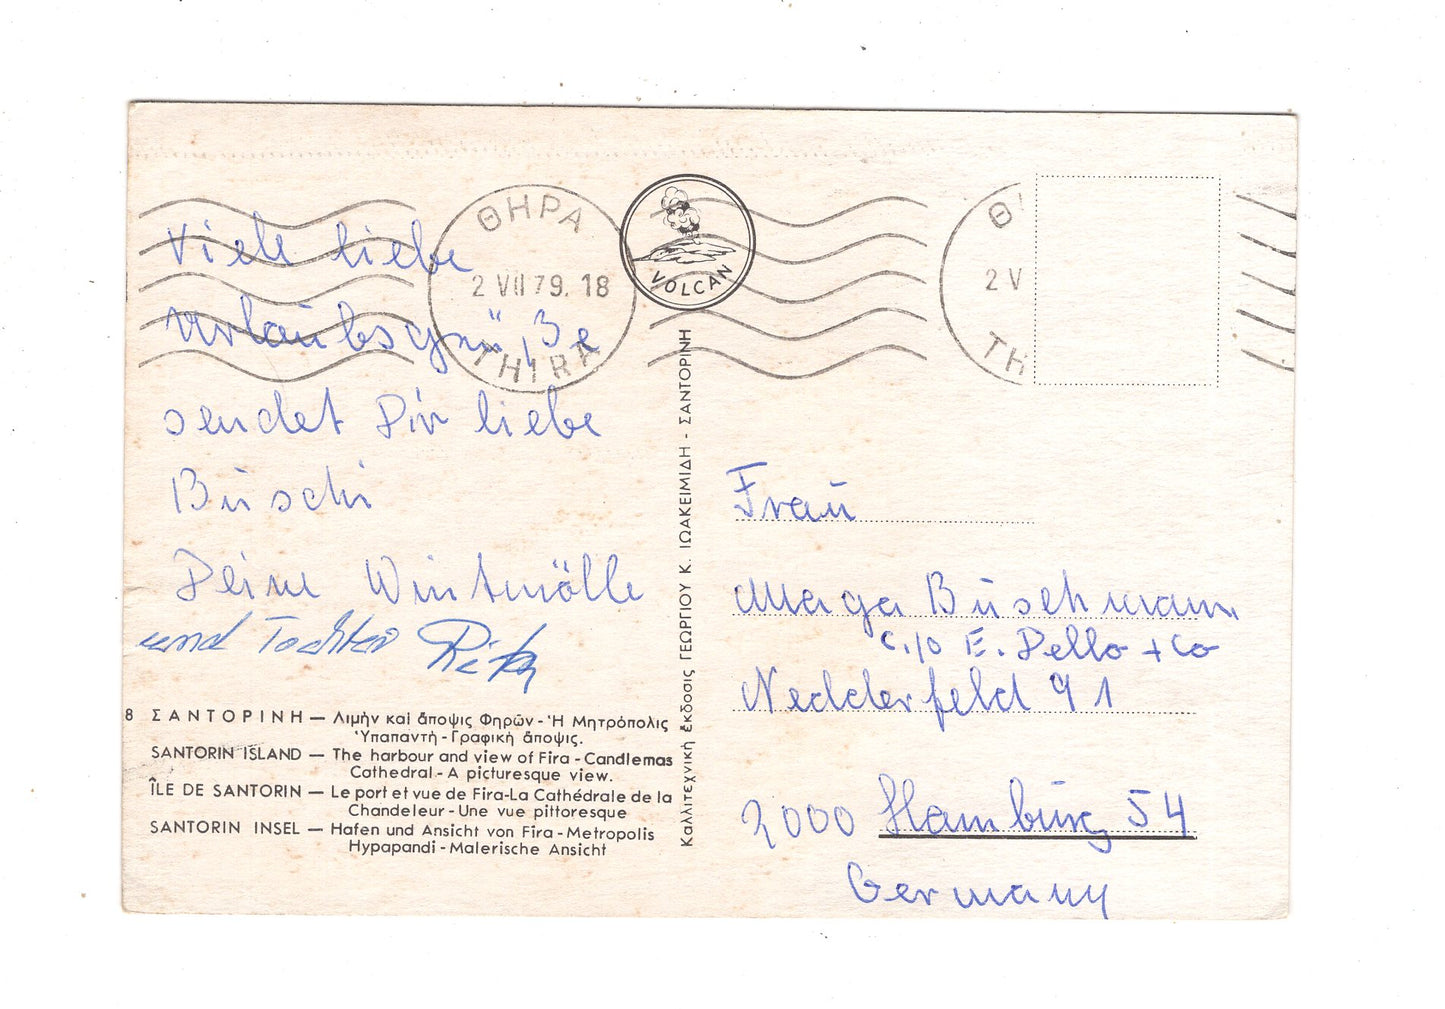 ΘΗΡΑ
2 VII 79. 18
THIRA
VOLCAN
2 V
TH
Viele liebe
Urlaubsgrüße
sendet Dir liebe
Buschi
Deine Wintmölle
und Tochter
8 ΣΑΝΤΟΡΙΝΗ — Λιμὴν καὶ ἄποψις Φηρῶν - Ἡ Μητρόπολις
Ὑπαπαντὴ - Γραφικὴ ἄποψις.
SANTORIN ISLAND — The harbour and view of Fira - Candlemas
Cathedral - A picturesque view.
ÎLE DE SANTORIN — Le port et vue de Fira-La Cathédrale de la
Chandeleur - Une vue pittoresque
SANTORIN INSEL — Hafen und Ansicht von Fira - Metropolis
Hypapandi - Malerische Ansicht
Καλλιτεχνικὴ ἔκδοσις ΓΕΩΡΓΙΟΥ Κ. ΙΩΑΚΕΙΜΙΔΗ - ΣΑΝΤΟΡΙΝΗ
Frau
Maga Buschmann
c./o E. Dello + Co
Nedderfeld 91
2000 Hamburg 54
Germany